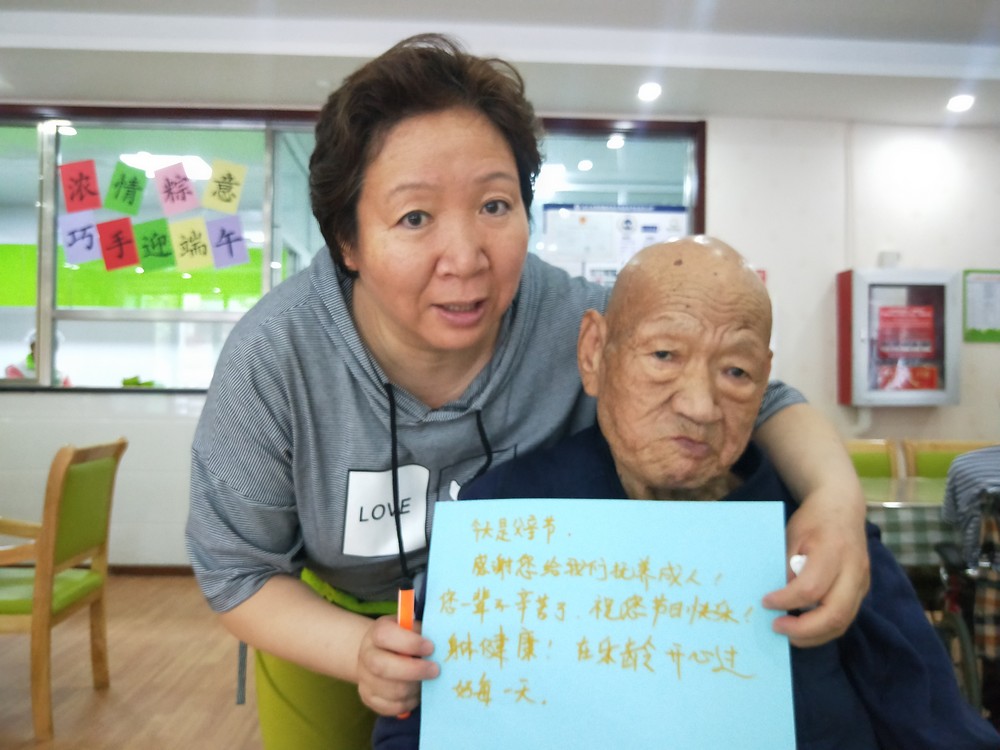 浓情粽意
巧手迎端午
LOVE
今天是父亲节.
感谢您给我们抚养成人!
您一辈子辛苦了.祝您节日快乐!
身体健康!在乐龄开心过
好每一天.